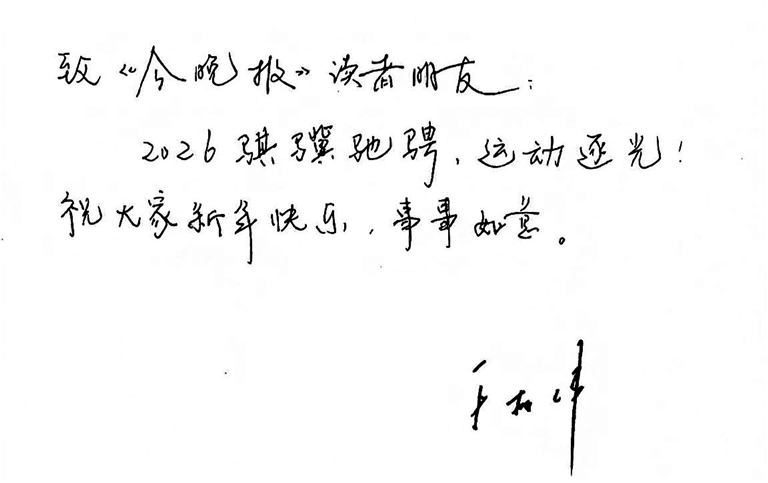 致《今晚报》读者朋友：
2026骐骥驰骋，运动逐光！
祝大家新年快乐，事事如意。